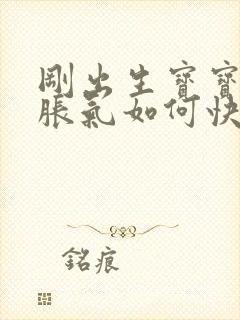 剛出生寶寶
脹氣如何快
銘痕